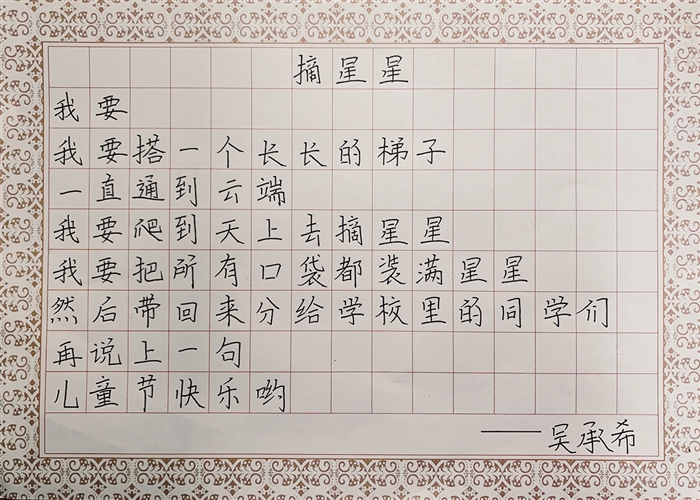 摘星星
我要
我要搭一个长长的梯子
一直通到云端
我要爬到天上去摘星星
我要把所有口袋都装满星星
然后带回来分给学校里的同学们
再说上一句
儿童节快乐哟
——吴承希